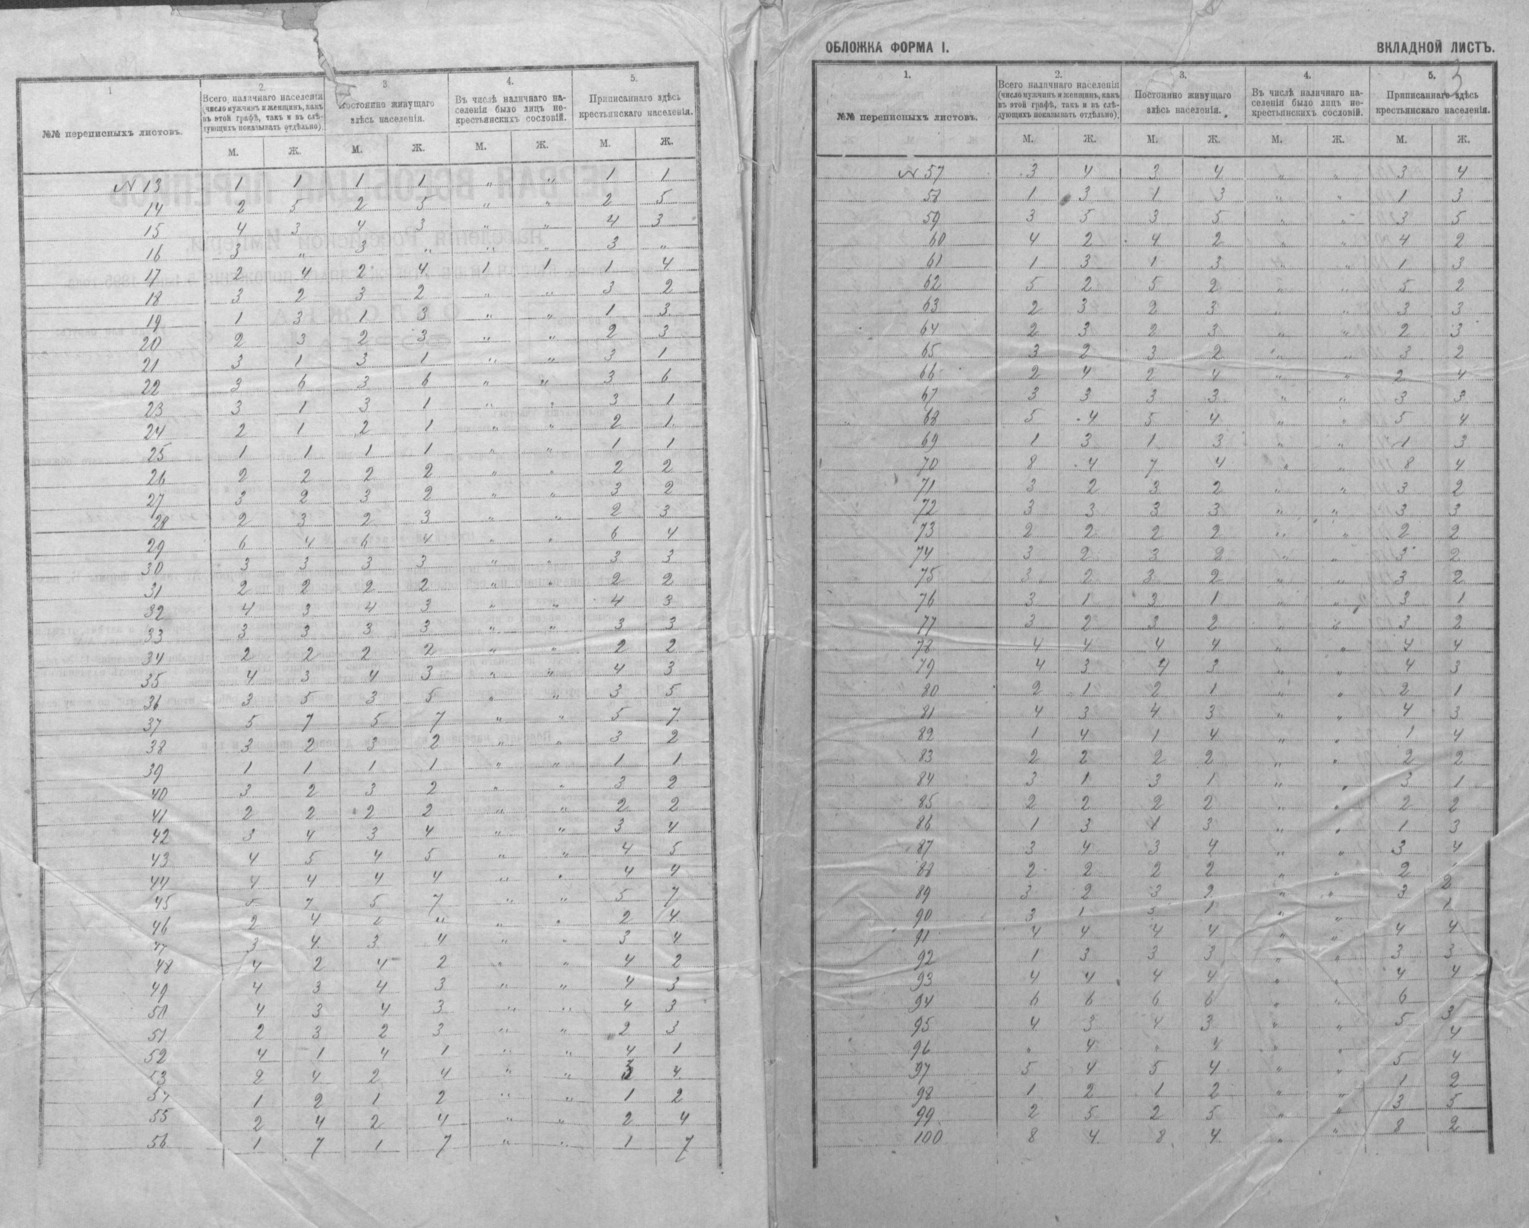 1 2. 3 4. 5.
№№ переписныхъ листовъ. Всего наличнаго населенія (число мужчинъ и женщинъ, какъ въ этой графѣ, такъ и въ слѣдующихъ показывать отдѣльно). Постоянно живущаго здѣсь населенія. Въ числѣ наличнаго населенія было лицъ некрестьянскихъ сословій. Приписаннаго здѣсь крестьянскаго населенія.
М. Ж. М. Ж. М. Ж. М. Ж.
№ 13 1 1 1 1 " " 1 1
14 2 5 2 5 " " 2 5
15 4 3 4 3 " " 4 3
16 3 " 3 " " " 3 "
17 2 4 2 4 1 1 1 4
18 3 2 3 2 " " 3 2
19 1 3 1 3 " " 1 3
20 2 3 2 3 " " 2 3
21 3 1 3 1 " " 3 1
22 3 6 3 6 " " 3 6
23 3 1 3 1 " " 3 1
24 2 1 2 1 " " 2 1
25 1 1 1 1 " " 1 1
26 2 2 2 2 " " 2 2
27 3 2 3 2 " " 3 2
28 2 3 2 3 " " 2 3
29 6 4 6 4 " " 6 4
30 3 3 3 3 " " 3 3
31 2 2 2 2 " " 2 2
32 4 3 4 3 " " 4 3
33 3 3 3 3 " " 3 3
34 2 2 2 2 " " 2 2
35 4 3 4 3 " " 4 3
36 3 5 3 5 " " 3 5
37 5 7 5 7 " " 5 7
38 3 2 3 2 " " 3 2
39 1 1 1 1 " " 1 1
40 3 2 3 2 " " 3 2
41 2 2 2 2 " " 2 2
42 3 4 3 4 " " 3 4
43 4 5 4 5 " " 4 5
44 4 4 4 4 " " 4 4
45 5 7 5 7 " " 5 7
46 2 4 2 " " 2 4
47 3 4 3 4 " " 3 4
48 4 2 4 2 " " 4 2
49 4 3 4 3 " " 4 3
50 4 3 4 3 " " 4 3
51 2 3 2 3 " " 2 3
52 4 1 4 1 " " 4 1
53 2 4 2 4 " " 3 4
54 1 2 1 2 " " 1 2
55 2 4 2 4 " " 2 4
56 1 7 1 7 " " 1 7
ОБЛОЖКА ФОРМА I. ВКЛАДНОЙ ЛИСТЪ.
1. 2. 3. 4. 5.
№№ переписныхъ листовъ. Всего наличнаго населенія (число мужчинъ и женщинъ, какъ въ этой графѣ, такъ и въ слѣдующихъ показывать отдѣльно). Постоянно живущаго здѣсь населенія. Въ числѣ наличнаго населенія было лицъ некрестьянскихъ сословій. Приписаннаго здѣсь крестьянскаго населенія.
М. Ж. М. Ж. М. Ж. М. Ж.
№ 57 3 4 3 4 " " 3 4
58 1 3 1 3 " " 1 3
59 3 5 3 5 " " 3 5
60 4 2 4 2 " " 4 2
61 1 3 1 3 " " 1 3
62 5 2 5 2 " " 5 2
63 2 3 2 3 " " 3 3
64 2 3 2 3 " " 2 3
65 3 2 3 2 " " 3 2
66 2 4 2 4 " " 2 4
67 3 3 3 3 " " 3 3
68 5 4 5 4 " " 5 4
69 1 3 1 3 " " 1 3
70 8 4 7 4 " " 8 4
71 3 2 3 2 " " 3 2
72 3 3 3 3 " " 3 3
73 2 2 2 2 " " 2 2
74 3 2 3 2 " " 3 2
75 3 2 3 2 " " 3 2
76 3 1 3 1 " " 3 1
77 3 2 3 2 " " 3 2
78 4 4 4 4 " " 4 4
79 4 3 4 3 " " 4 3
80 2 1 2 1 " " 2 1
81 4 3 4 3 " " 4 3
82 1 4 1 4 " " 1 4
83 2 2 2 2 " " 2 2
84 3 1 3 1 " " 3 1
85 2 2 2 2 " " 2 2
86 1 3 1 3 " " 1 3
87 3 4 3 4 " " 3 4
88 2 2 2 2 " " 2
89 3 2 3 2 " " 3 2
90 3 1 3 1 " "
91 4 4 4 4 " " 4 4
92 1 3 3 3 " " 3 3
93 4 4 4 4 " " 4 4
94 6 6 6 6 " " 6
95 4 3 4 3 " " 5 3
96 " 4 " 4 " " 4
97 5 4 5 4 " " 5 4
98 1 2 1 2 " " 1 2
99 2 5 2 5 " " 3 5
100 8 4 8 4 " " 8 2